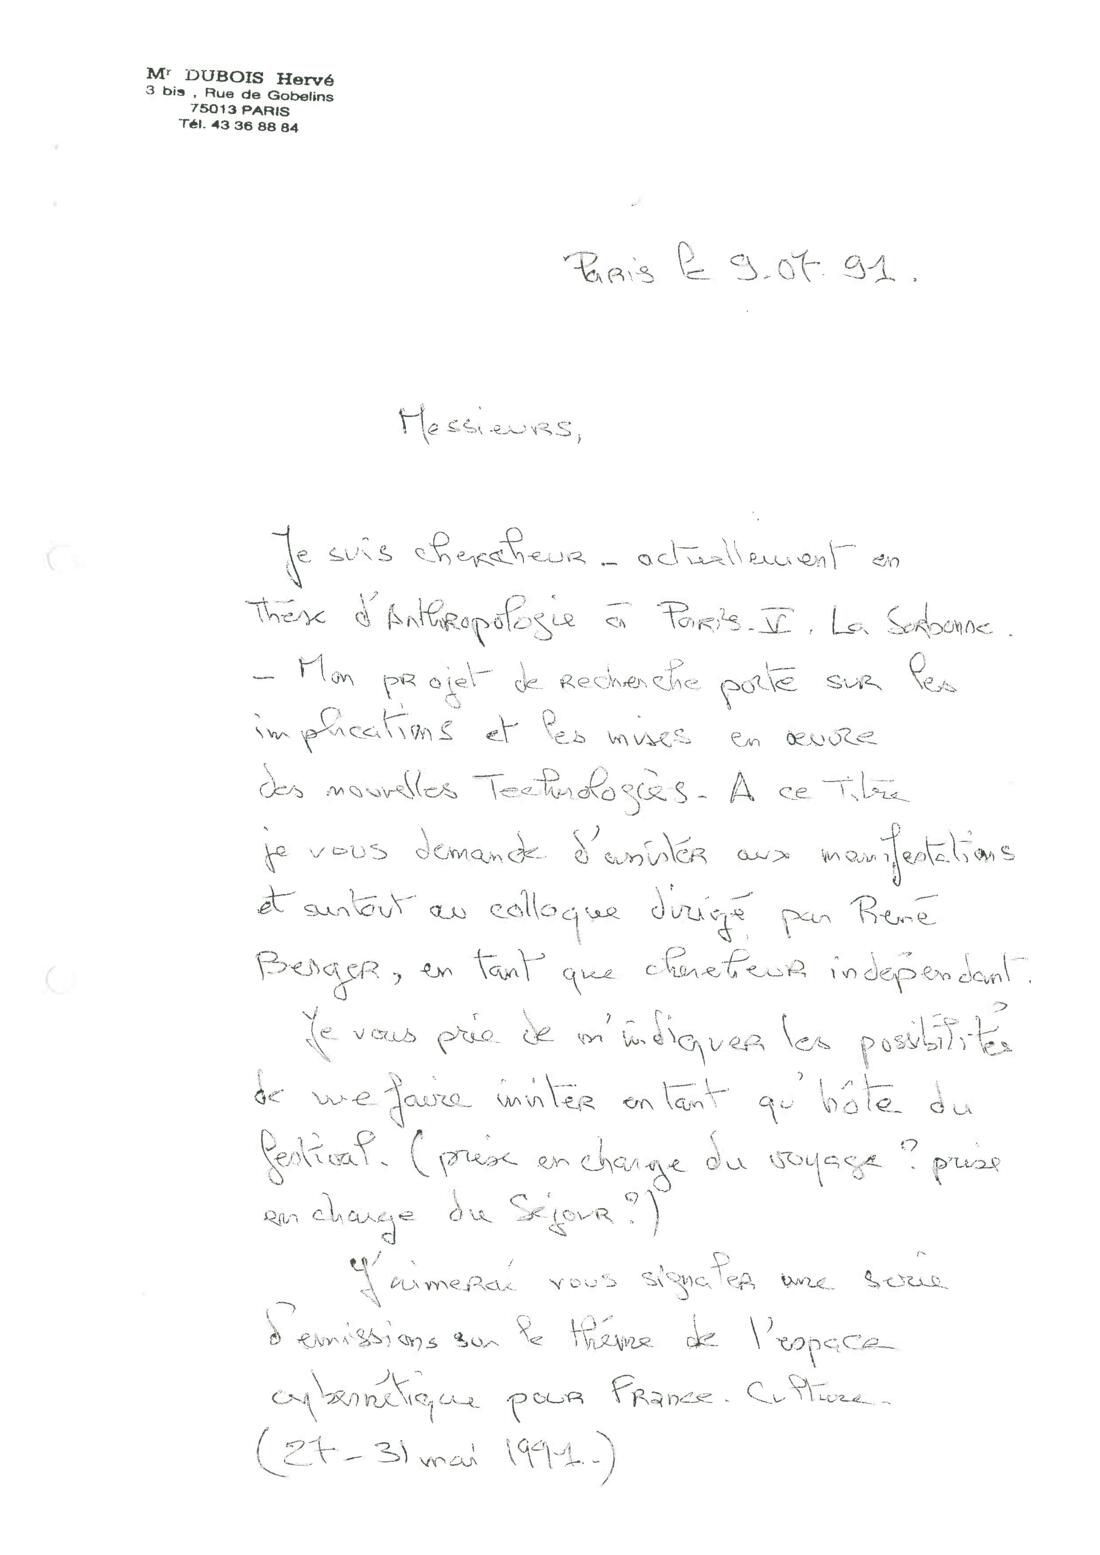 Mr DUBOIS Hervé
3 bis , Rue de Gobelins
75013 PARIS
Tél. 43 36 88 84
Paris le 9.07.91.
Messieurs,
Je suis chercheur - actuellement en
Thèse d'Anthropologie à Paris-V. La Sorbonne.
- Mon projet de recherche porte sur les
implications et les mises en œuvre
des nouvelles Technologies - A ce Titre
je vous demande d'assister aux manifestations
et surtout au colloque dirigé par René
Berger, en tant que chercheur indépendant.
Je vous prie de m'indiquer les possibilités
de me faire inviter en tant qu'hôte du
festival. (prise en charge du voyage ? prise
en charge du Séjour ?)
J'aimerai vous signaler une série
d'emissions sur le thème de l'espace
cybernétique pour France-Culture.
(27-31 mai 1991.)